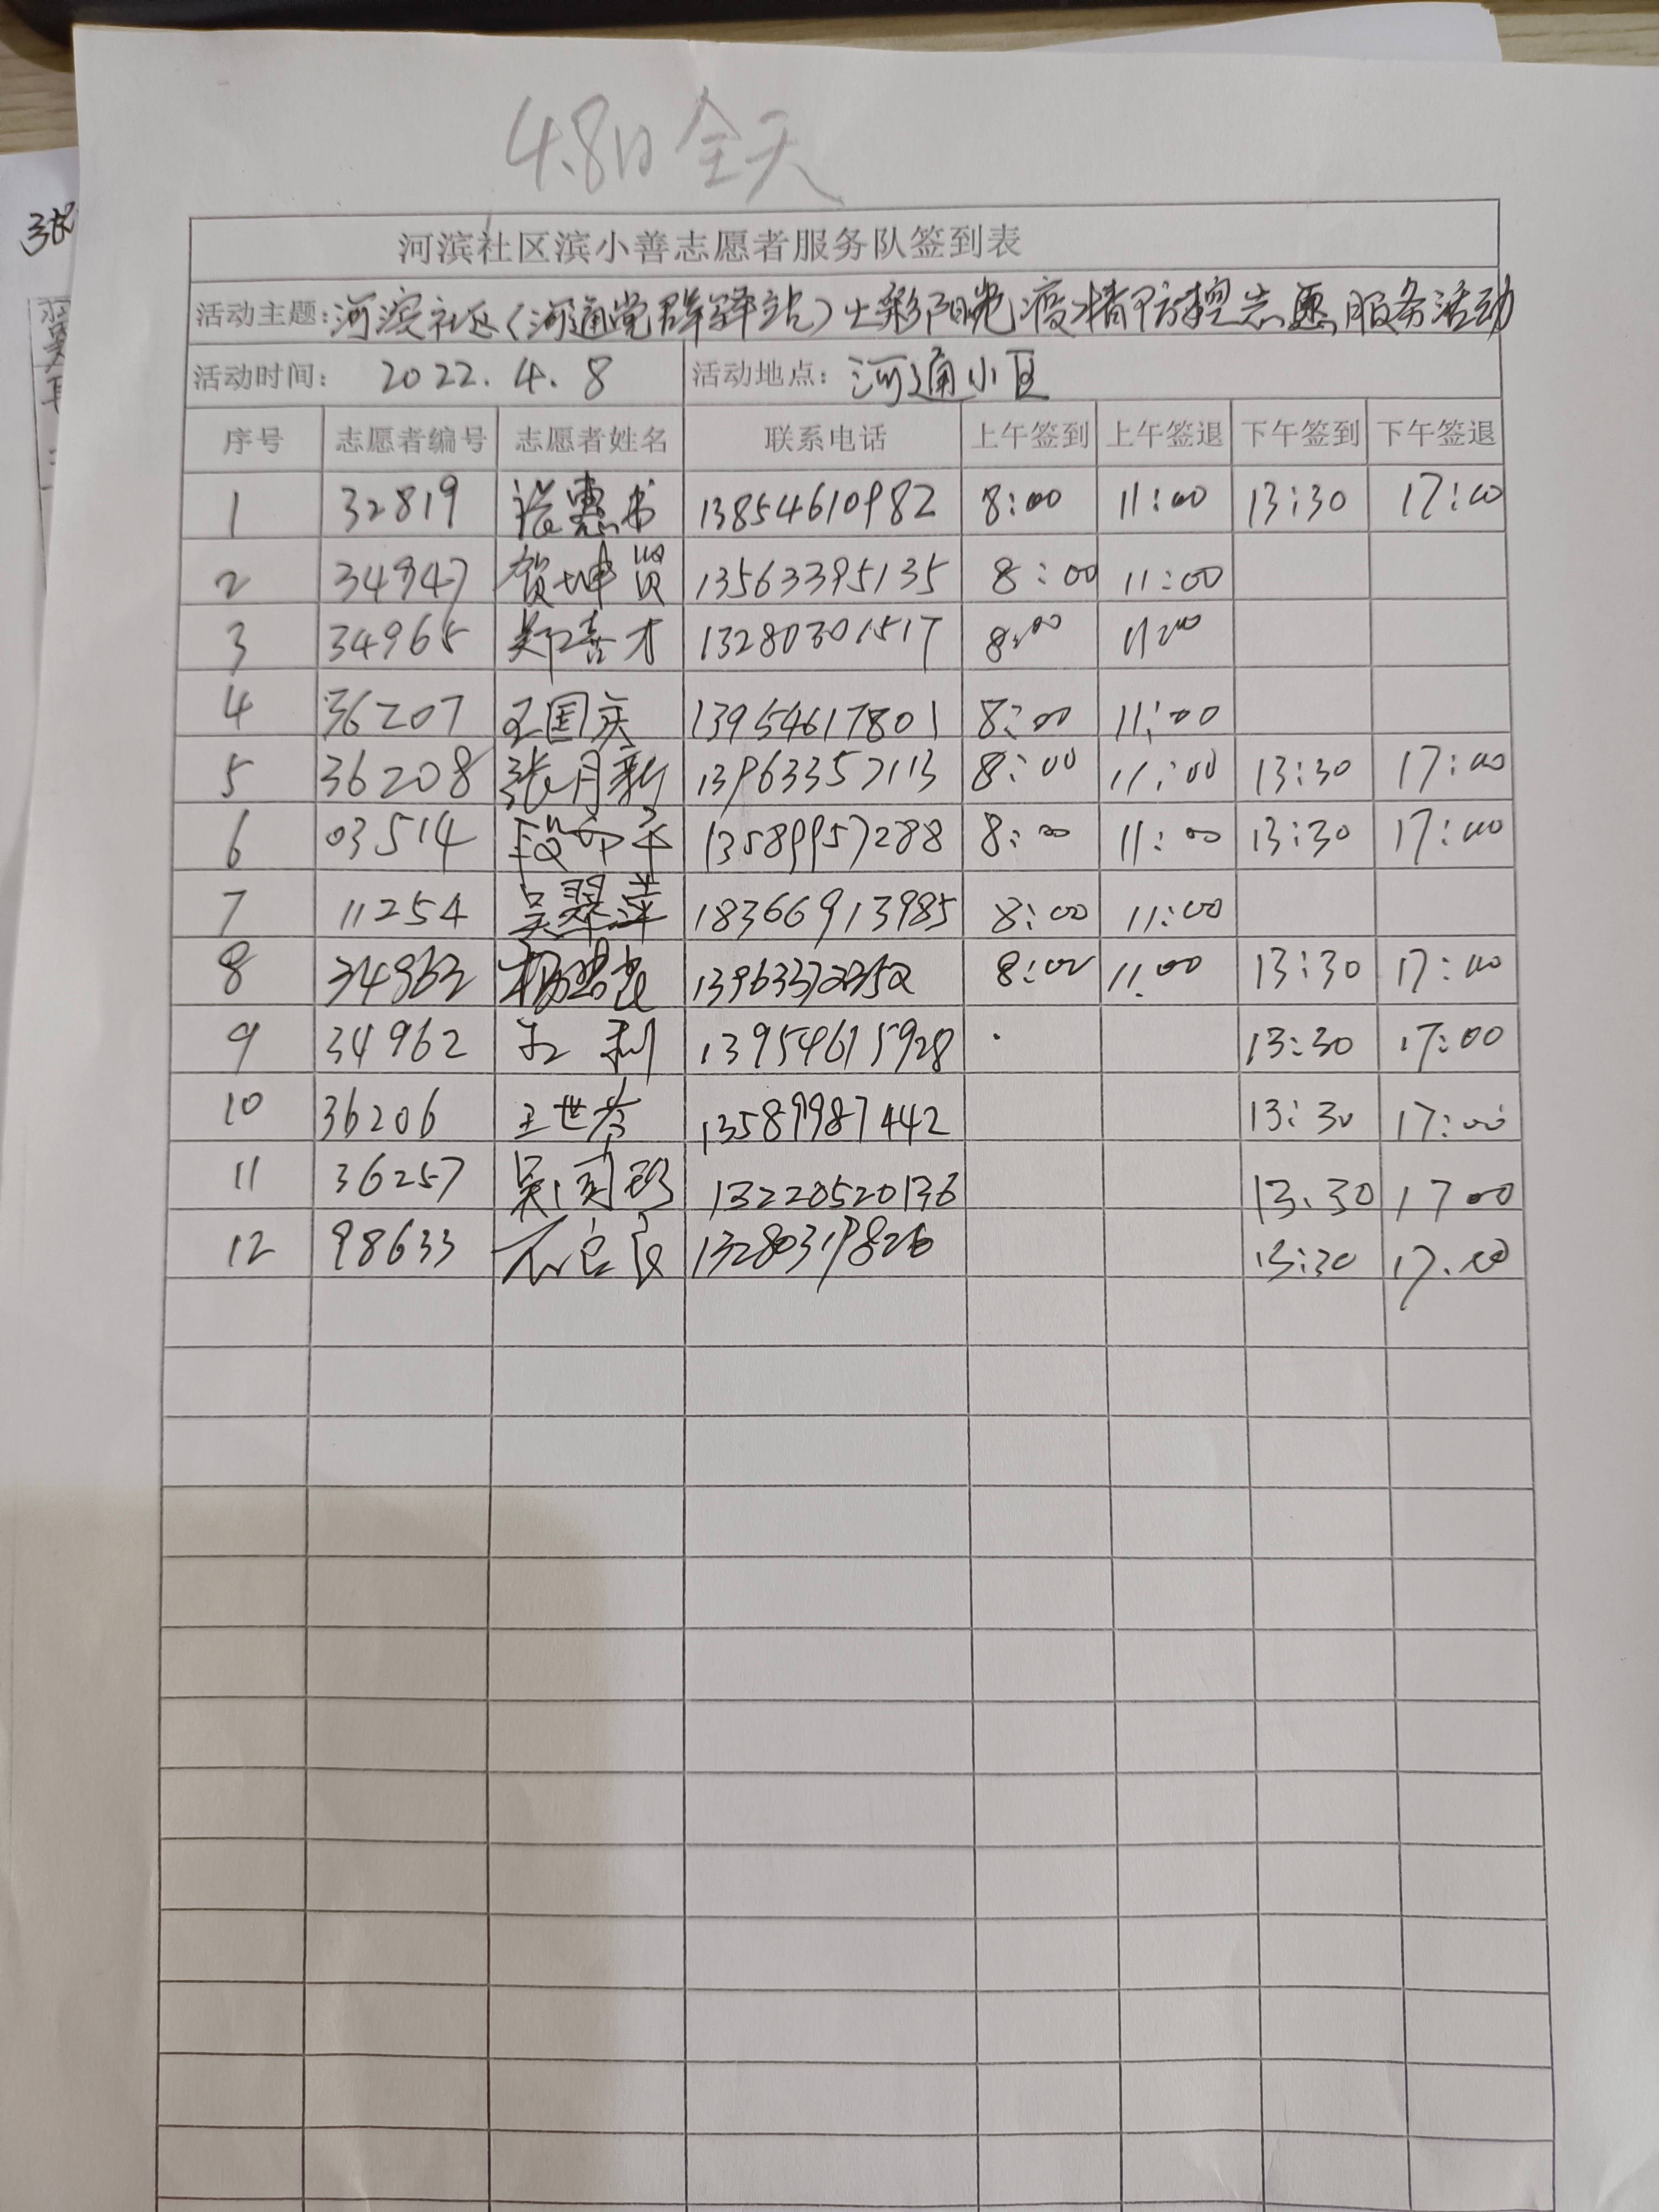 4.8日全天
河滨社区滨小善志愿者服务队签到表
活动主题:河滨社区(河通党群驿站)七彩阳光疫情防控志愿服务活动
活动时间: 2022.4.8 活动地点: 河通小区
序号 志愿者编号 志愿者姓名 联系电话 上午签到 上午签退 下午签到 下午签退
1 32819 张惠书 13854610982 8:00 11:00 13:30 17:00
2 34947 贺坤贤 13563395135 8:00 11:00
3 34965 郑喜才 13280301517 8:00 11:00
4 36207 王国庆 13954617801 8:00 11:00
5 36208 张月新 13963357113 8:00 11:00 13:30 17:00
6 03514 13589957288 8:00 11:00 13:30 17:00
7 11254 吴翠萍 18366913985 8:00 11:00
8 34963 8:00 11:00 13:30 17:00
9 34962 13954615928 13:30 17:00
10 36206 王世芳 13589987442 13:30 17:00
11 36257 13220520136 13.30 1700
12 98633 13280319826 13:30 17.00
张